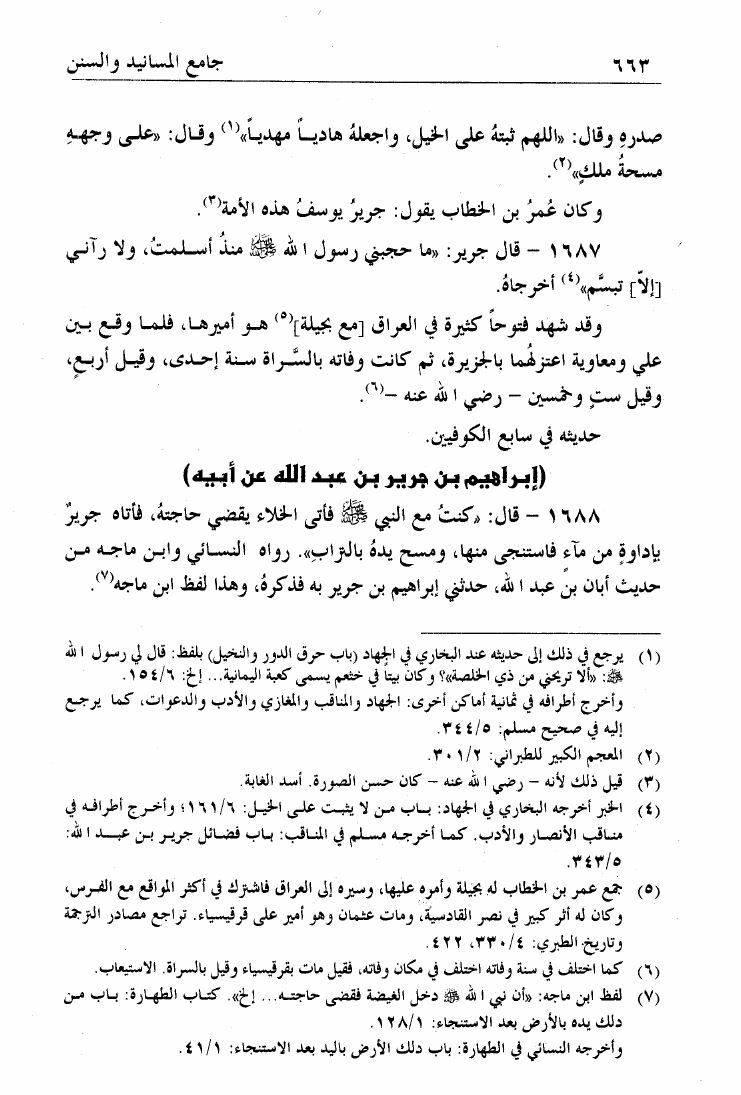 ٦٦٣ جامع المسانيد والسنن
صدرهِ وقال: «اللهم ثبتهُ على الخيل، واجعلهُ هاديـاً مهدياً»(١) وقـال: «علـى وجهـهِ
مسحةُ ملكٍ»(٢).
وكان عُمرُ بن الخطاب يقول: جريرُ يوسفُ هذه الأمة(٣).
١٦٨٧ – قال جرير: «ما حجبني رسول الله ﷺ منذُ أسـلمتُ، ولا رآنـي
[إلاّ] تبسَّم»(٤) أخرجاهُ.
وقد شهد فتوحاً كثيرة في العراق [مع بجيلة](٥) هـو أميرهـا، فلمـا وقـع بـين
علي ومعاوية اعتزلهُما بالجزيرة، ثم كانت وفاته بالسَّراة سـنة إحـدى، وقيـل أربـعٍ،
وقيل ستٍ وخمسين – رضي الله عنه –(٦).
حديثه في سابع الكوفيين.
(إبراهيم بن جرير بن عبد الله عن أبيه)
١٦٨٨ – قال: «كنتُ مع النبي ﷺ فأتى الخلاء يقضي حاجتهُ، فأتاه جريرٌ
بإداوةٍ من مآءٍ فاستنجى منها، ومسح يدهُ بالترابِ». رواه النسـائي وابـن ماجـه مـن
حديث أبان بن عبد الله، حدثني إبراهيم بن جرير به فذكرهُ، وهذا لفظ ابن ماجه(٧).
(١) يرجع في ذلك إلى حديثه عند البخاري في الجهاد (باب حرق الدور والنخيل) بلفظ: قال لي رسول الله
ﷺ: «ألا تريحني من ذي الخلصة»؟ وكان بيتاً في خثعم يسمى كعبة اليمانية... إلخ: ١٥٤/٦.
وأخرج أطرافه في ثمانية أماكن أخرى: الجهاد والمناقب والمغازي والأدب والدعوات، كما يرجـع
إليه في صحيح مسلم: ٣٤٤/٥.
(٢) المعجم الكبير للطبراني: ٣٠١/٢.
(٣) قيل ذلك لأنه – رضي الله عنه – كان حسن الصورة. أسد الغابة.
(٤) الخبر أخرجه البخاري في الجهاد: بـاب مـن لا يثبـت علـى الخيـل: ١٦١/٦؛ وأخـرج أطرافـه في
مناقب الأنصار والأدب. كمـا أخرجـه مسـلم في المناقب: بـاب فضـائل جريـر بـن عبـد الله:
٣٤٣/٥.
(٥) جمع عمر بن الخطاب له بجيلة وأمره عليها، وسيره إلى العراق فاشترك في أكثر المواقع مع الفرس،
وكان له أثر كبير في نصر القادسية، ومات عثمان وهو أمير على قرقيسياء. تراجع مصادر الترجمة
وتاريخ الطبري: ٣٣٠/٤، ٤٢٢.
(٦) كما اختلف في سنة وفاته اختلف في مكان وفاته، فقيل مات بقرقيسياء وقيل بالسراة. الاستيعاب.
(٧) لفظ ابن ماجه: «أن نبي الله ﷺ دخل الغيضة فقضى حاجتـه... إلخ». كتـاب الطهـارة: بـاب مـن
دلك يده بالأرض بعد الاستنجاء: ١٢٨/١.
وأخرجه النسائي في الطهارة: باب دلك الأرض باليد بعد الاستنجاء: ٤١/١.